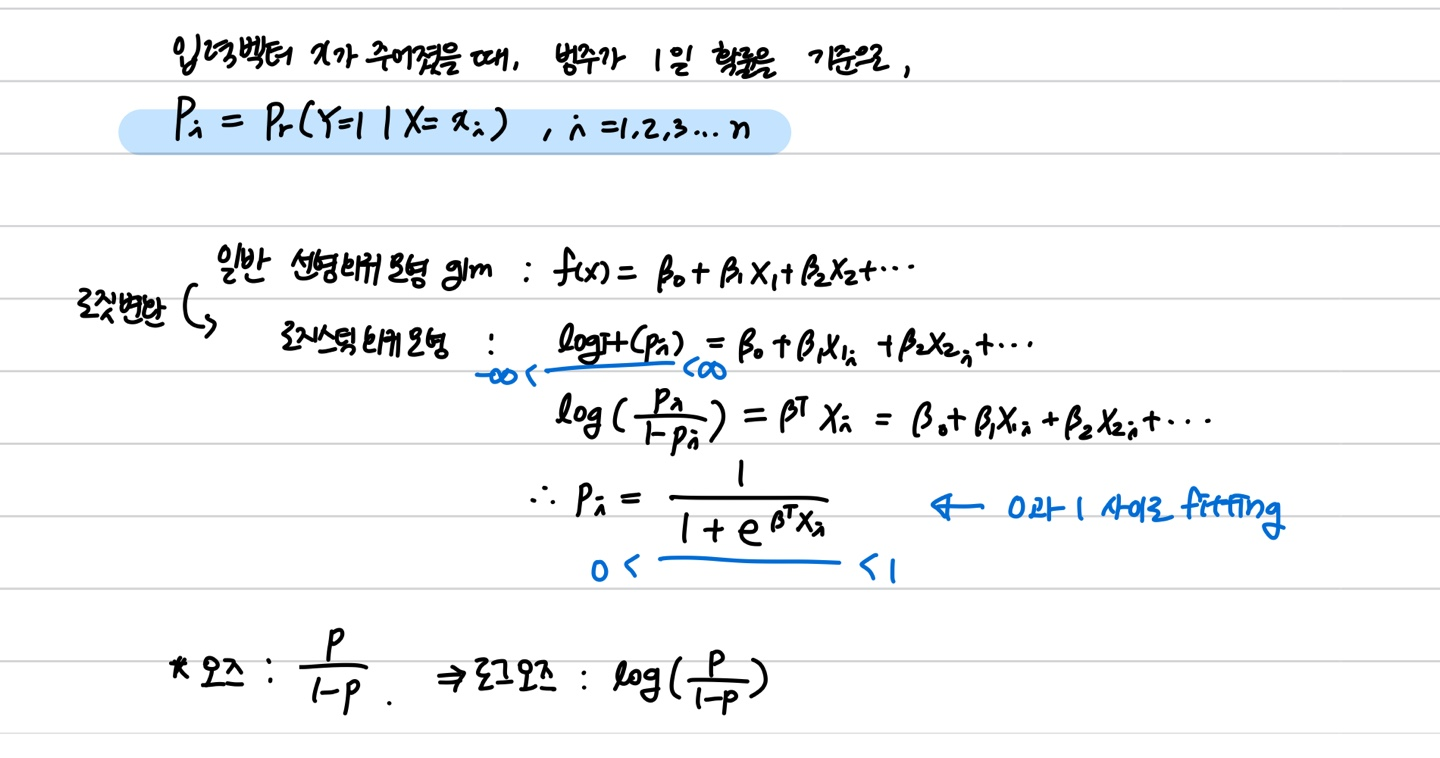 입력벡터 x가 주어졌을 때, 범주가 1일 확률을 기준으로,
Pᵢ = Pr(Y=1 | X= xᵢ) , i =1,2,3... n
일반 선형회귀 모형 glm : f(x) = β₀ + β₁X₁ + β₂X₂ + ···
로짓변환
로지스틱 회귀 모형 : logit(pᵢ) = β₀ + β₁X₁ᵢ + β₂X₂ᵢ + ···
-∞ < < ∞
log(pᵢ/(1-pᵢ)) = βᵀ Xᵢ = β₀ + β₁X₁ᵢ + β₂X₂ᵢ + ···
∴ pᵢ = 1/(1 + e^(βᵀXᵢ)) ← 0과 1 사이로 fitting
0 < < 1
* 오즈 : p/(1-p) . ⇒ 로그오즈 : log(p/(1-p))